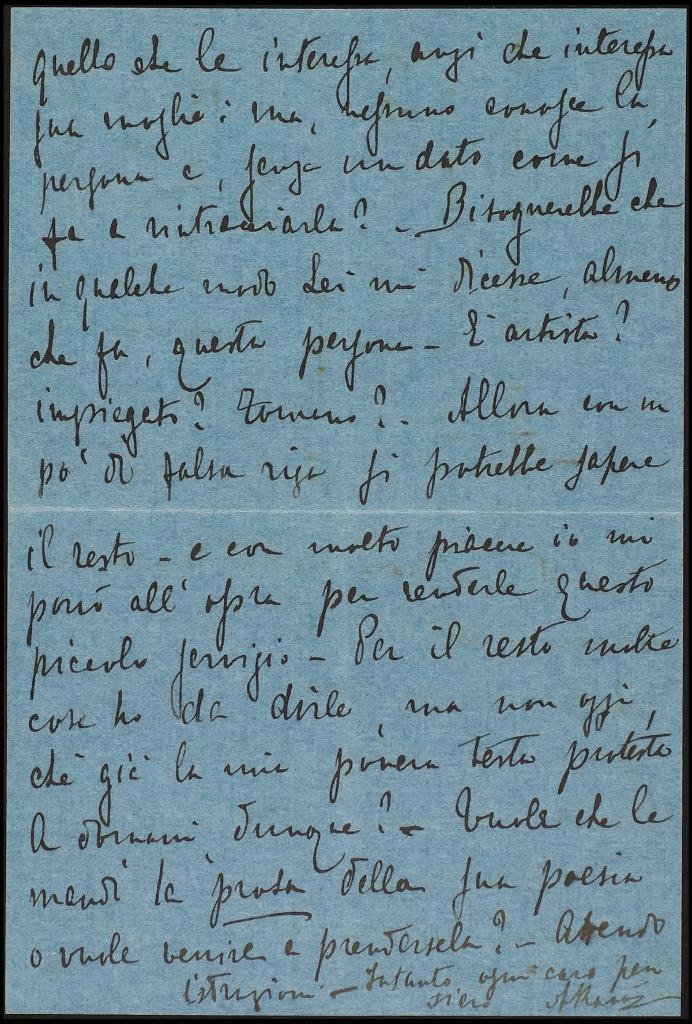 quello che le interessa, anzi che interessa
sua moglie: ma, nessuno conosce la
persona e, senza un dato come si
fa a rintracciarla? - Bisognerebbe che
in qualche modo Lei mi dicesse, almeno
che fa, questa persona - È artista?
impiegato? Torneno? - Allora con un
po' di falsa riga si potrebbe sapere
il resto - e con molto piacere io mi
porrò all'opra per renderle questo
piccolo servizio - Per il resto molte
cose ho da dirle, ma non oggi,
chè già la mia povera testa protesta
A domani dunque? - Vuole che le
mandi la prosa della sua poesia
o vuole venire a prendersela? - Attendo
istruzioni - Intanto ogni caro pen
siero